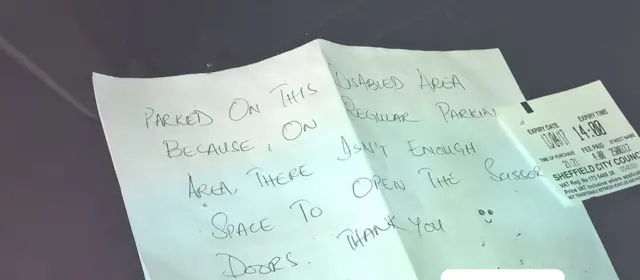 PARKED ON THIS DISABLED AREA
BECAUSE, ON REGULAR PARKIN
AREA, THERE ISN'T ENOUGH
SPACE TO OPEN THE SCISSOR
DOORS. THANK YOU
EXPIRY DATE EXPIRY TIME
17/04/17 14:00
TIME OF PURCHASE FEE PAID STREET NAME
21:21 1.00
SHEFFIELD CITY COUNC
VAT Reg. No 173 5468 38
Price VAT inclusive where applica